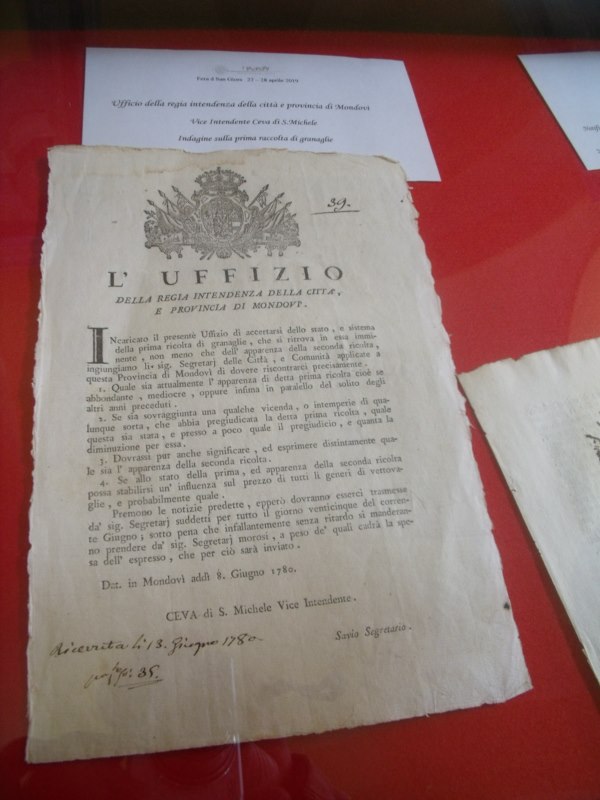 Fera d San Giors 27 - 28 aprile 2019
Ufficio della regia intendenza della città e provincia di Mondovì
Vice Intendente Ceva di S.Michele
Indagine sulla prima raccolta di granaglie
39.
L' UFFIZIO
DELLA REGIA INTENDENZA DELLA CITTA',
E PROVINCIA DI MONDOVI'.
INcaricato il presente Uffizio di accertarsi dello stato, e sistema
della prima ricolta di granaglie, che si ritrova in essa immi-
nente, non meno che dell'apparenza della seconda ricolta,
ingiungiamo li sig. Segretarj delle Città, e Comunità applicate a
questa Provincia di Mondovì di dovere riscontrarci precisamente.
1. Quale sia attualmente l'apparenza di detta prima ricolta cioè se
abbondante, mediocre, oppure infima in paralello del solito degli
altri anni preceduti.
2. Se sia sovraggiunta una qualche vicenda, o intemperie di qua-
lunque sorta, che abbia pregiudicata la detta prima ricolta, quale
questa sia stata, e presso a poco quale il pregiudicio, e quanta la
diminuzione per essa.
3. Dovrassi pur anche significare, ed esprimere distintamente qua-
le sia l'apparenza della seconda ricolta.
4. Se allo stato della prima, ed apparenza della seconda ricolta
possa stabilirsi un'influenza sul prezzo di tutti li generi di vettova-
glie, e probabilmente quale.
Premono le notizie predette, epperò dovranno esserci trasmesse
da' sig. Segretarj suddetti per tutto il giorno venticinque del corren-
te Giugno; sotto pena che infallantemente senza ritardo si manderan-
no prendere da' sig. Segretarj morosi, a peso de' quali cadrà la spe-
sa dell'espresso, che per ciò sarà inviato.
Dat. in Mondovì addì 8. Giugno 1780.
CEVA di S. Michele Vice Intendente.
Savio Segretario.
Ricevuta li 13. Giugno 1780
35.